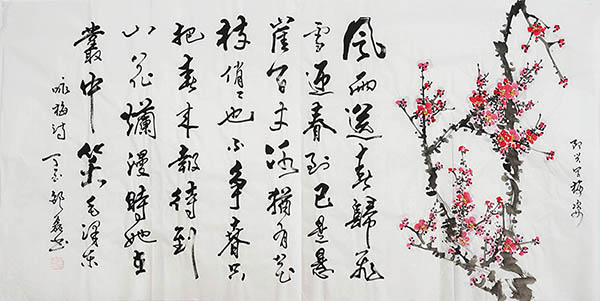 風雨送春歸飛
雪迎春到已是懸
崖百丈冰猶有花
枝俏俏也不争春只
把春来報待到
山花爛漫時她在
叢中笑毛澤东
咏梅诗丁亥